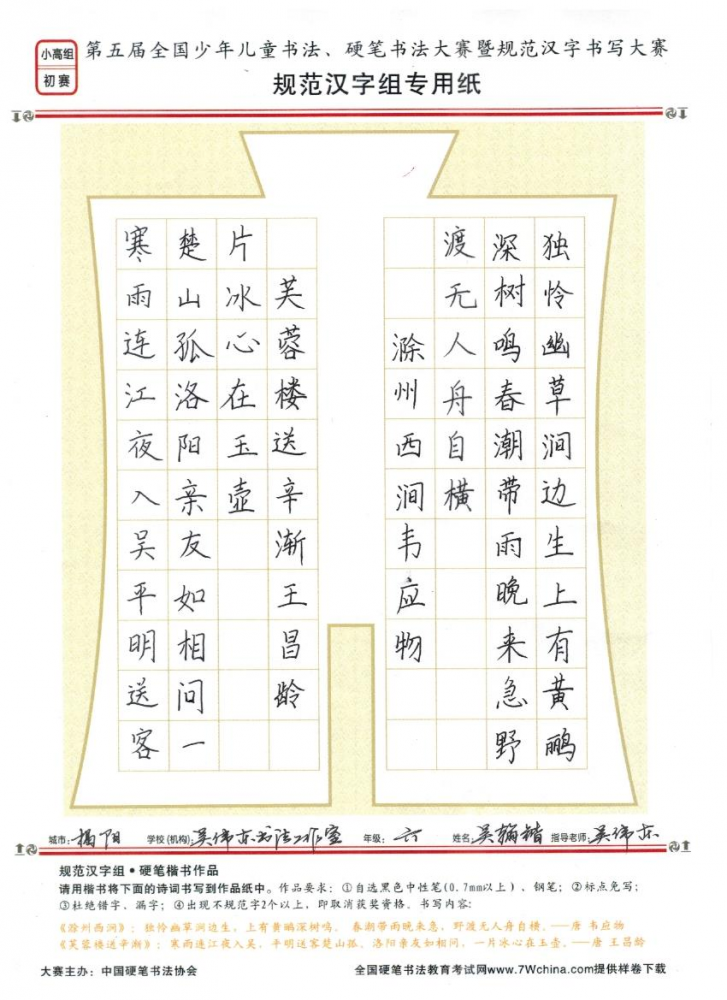 小高组
初赛
第五届全国少年儿童书法、硬笔书法大赛暨规范汉字书写大赛
规范汉字组专用纸
独怜幽草涧边生上有黄鹂
深树鸣春潮带雨晚来急野
渡无人舟自横
滁州西涧韦应物
寒雨连江夜入吴平明送客
楚山孤洛阳亲友如相问一
片冰心在玉壶
芙蓉楼送辛渐王昌龄
城市：揭阳 学校(机构)：吴伟东书法工作室 年级：六 姓名：吴 指导老师：吴伟东
规范汉字组·硬笔楷书作品
请用楷书将下面的诗词书写到作品纸中。作品要求：①自选黑色中性笔(0.7mm以上)、钢笔；②标点免写；
③杜绝错字、漏字；④出现不规范字2个以上，即取消获奖资格。书写内容：
《滁州西涧》：独怜幽草涧边生，上有黄鹂深树鸣。 春潮带雨晚来急，野渡无人舟自横。——唐 韦应物
《芙蓉楼送辛渐》：寒雨连江夜入吴，平明送客楚山孤。洛阳亲友如相问，一片冰心在玉壶。——唐 王昌龄
大赛主办：中国硬笔书法协会 全国硬笔书法教育考试网www.7Wchina.com提供样卷下载